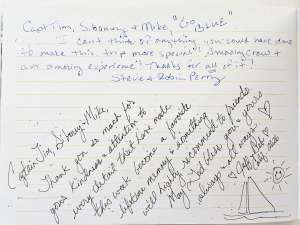 Capt Tim, Sibonney + Mike, "Go Blue"
I can't think of anything you could have done
to make this trip more special! Amazing Crew +
an amazing experience! Thanks for all of it!
Steve + Robin Perry
Captain Tim, Sibonney, Mike,
Thank you so much for
your kindness & attention to
every detail that have made
this week become a favorite
lifetime memory + something
will highly recommend to friends
May God bless you + yours
always